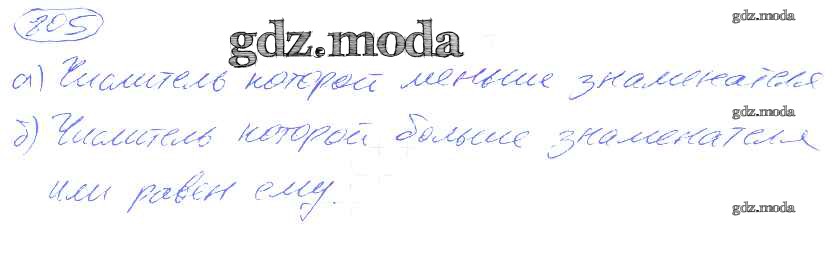 205
gdz.moda
gdz.moda
а) Числитель которой меньше знаменателя
gdz.moda
б) Числитель которой больше знаменателя
или равен ему.
gdz.moda